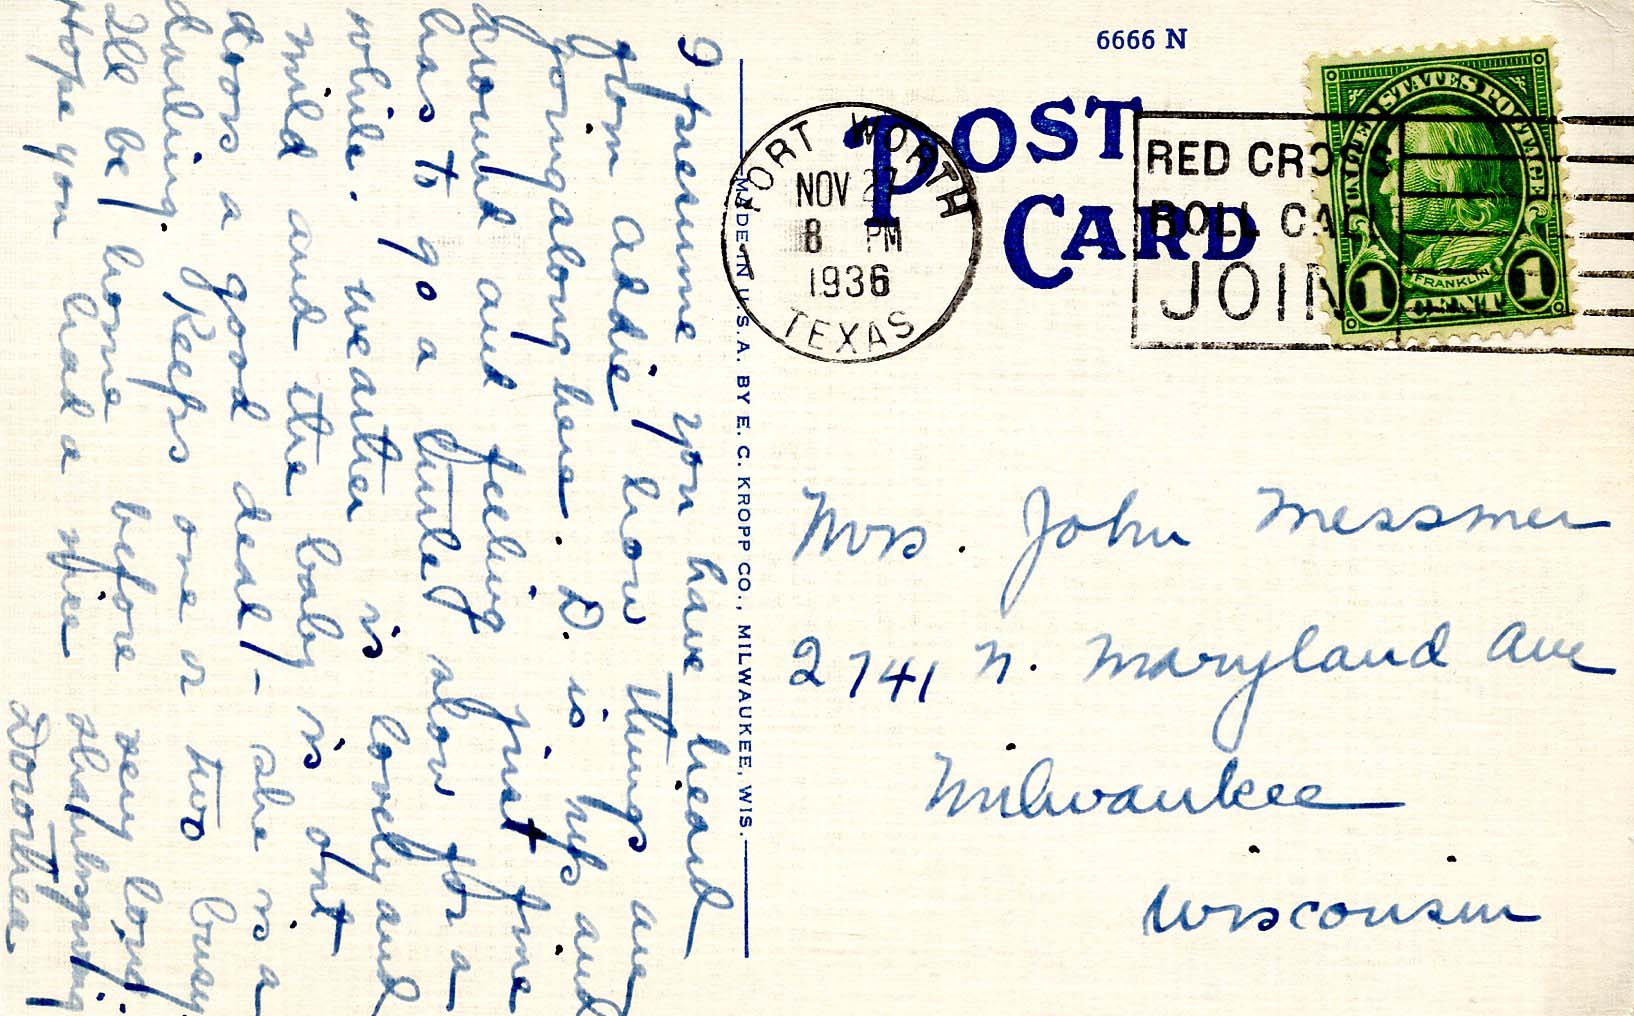 6666 N
POST
CARD
FORT WORTH
NOV 27
8 PM
1936
TEXAS
RED CROSS
ROLL CALL
JOIN
UNITED STATES POSTAGE
FRANKLIN
1 CENT 1
MADE IN U. S. A. BY E. C. KROPP CO., MILWAUKEE, WIS.
I presume you have heard
from Addie how things are
going along here. D. is up and
around and feeling just fine
has to go a little slow for a
while. Weather is lovely and
mild and the baby is out
doors a good deal - she is a
darling. Keeps one or two busy
Ill be home before very long.
Hope you had a nice thanksgiving
Dorothea
Mrs. John Messmer
2741 N. Maryland Ave
Milwaukee
Wisconsin